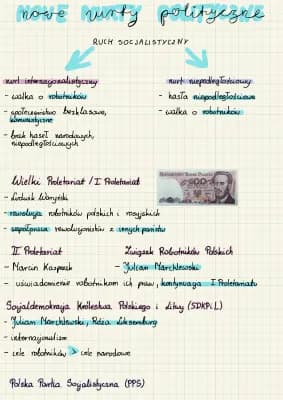 nowe nurty polityczne
RUCH SOCJALISTYCZNY
nurt internacjonalistyczny
- walka o robotników
- społeczeństwo bezklasowe,
komunistyczne
- brak haseł narodowych,
niepodległościowych
nurt niepodległościowy
- hasła niepodległościowe
- walka o robotników
Wielki Proletariat / I Proletariat
- Ludwik Waryński
- rewolucja robotników polskich i rosyjskich
- współpraca rewolucjonistów z innych państw
II Proletariat
- Marcin Kasprzak
Związek Robotników Polskich
- Julian Marchlewski
- uświadomienie robotnikom ich praw, kontynuacja I Proletariatu
Socjaldemokracja Królestwa Polskiego i Litwy (SDKPiL)
- Julian Marchlewski, Róża Luksemburg
- internacjonalizm
- cele robotników > cele narodowe
Polska Partia Socjalistyczna (PPS)